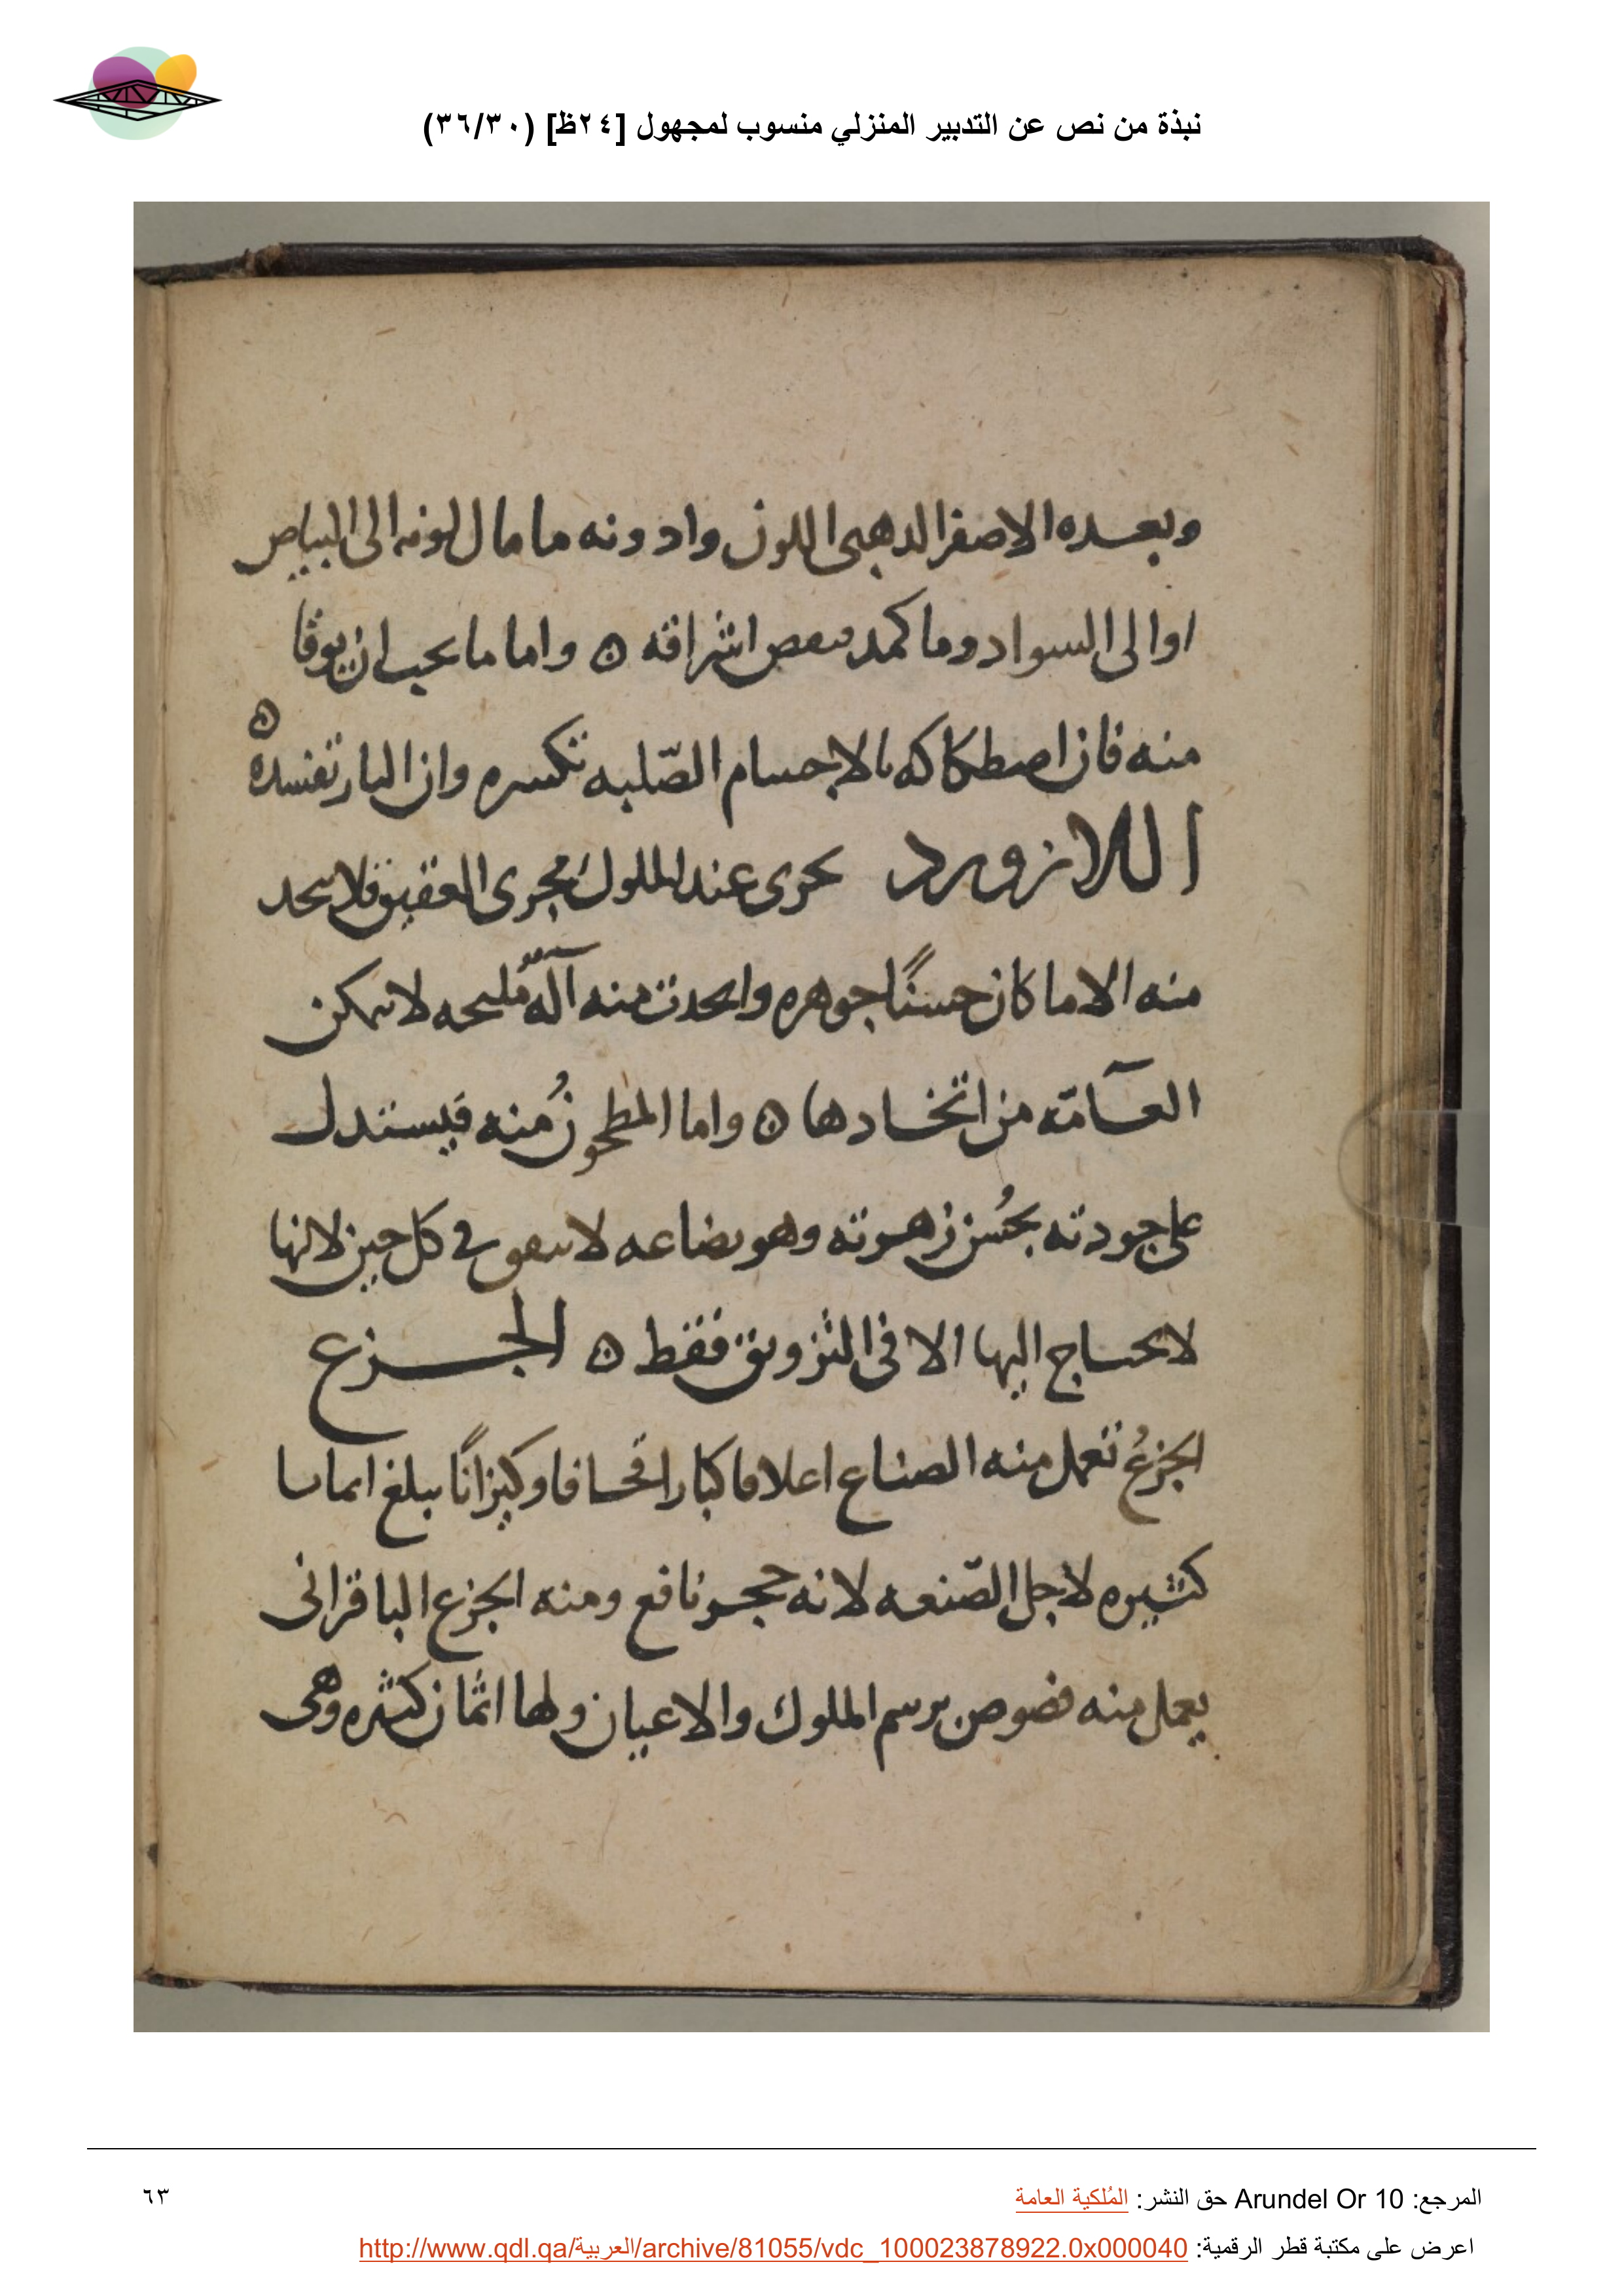 نبذة من نص عن التدبير المنزلي منسوب لمجهول [٢٤ظ] (٣٦/٣٠)
وبعده الاصفر الدهبى اللون وادونه ما مال لونه الى البياص
اوالى السواد وما كمد ىىعص اشراقه ٥ واما ما يحب ان يوقا
منه فان اصطكاكه بالاجسام الصّلبه تكسره وان النار تفسده ٥
اللازورد يجرى عند الملوك مجرى العقيق فلا يتحد
منه الا ما كان حسنًا جوهره واىحدت منه آله مليحه لا يمكن
العآمّه من اتخادها ٥ واما المطحون منه فيستدل
على جودته بحُسن زهوته وهو بضاعه لا تنفق في كل حين لانها
لا يحتاج اليها الا فى التزويق فقط ٥ الجزع
الجزعُ تعمل منه الصناع اعلاقا كبارا قحافا وكيزانًا يبلغ اثمانا
كثيره لاجل الصّنعه لانه حجر نافع ومنه الجزع الباقرانى
يعمل منه فصوص برسم الملوك والاعيان ولها اثمان كثيره وهى
المرجع: Arundel Or 10 حق النشر: المُلكية العامة
٦٣
اعرض على مكتبة قطر الرقمية: http://www.qdl.qa/العربية/archive/81055/vdc_100023878922.0x000040